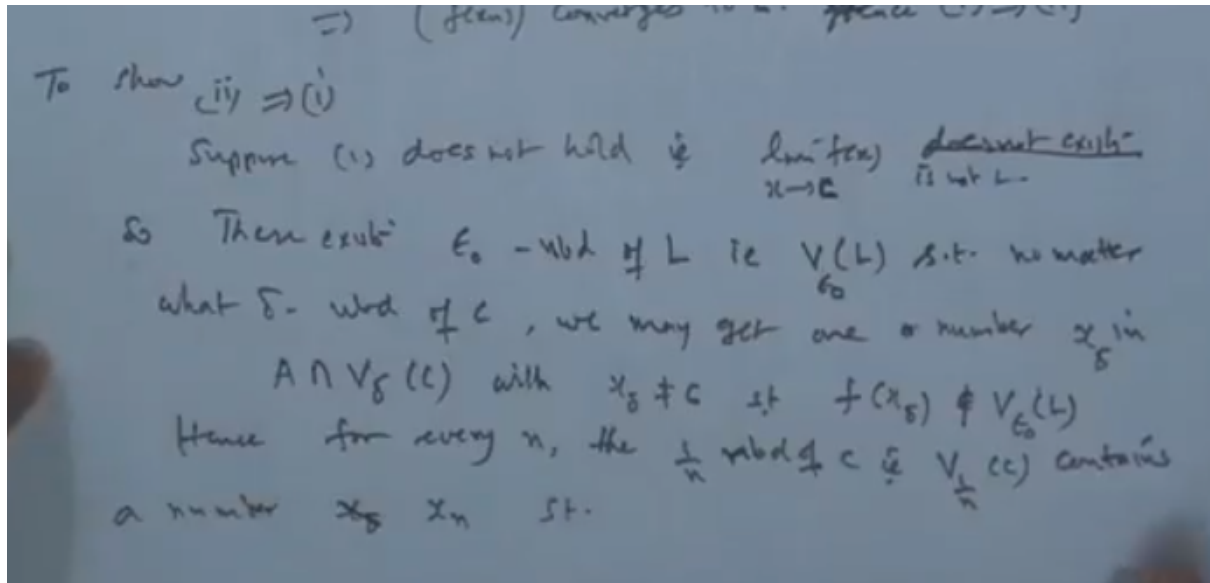 => (f(xn)) converges to L. Hence (i) => (ii)
To show (ii) => (i)
Suppose (i) does not hold ie lim f(x) does not exist
x→c is not L.
So There exist ε₀ - nbd of L ie V_ε₀(L) s.t. no matter
what δ- nbd of c, we may get one or number x_δ in
A ∩ V_δ (c) with x_δ ≠ c st f(x_δ) ∉ V_ε₀(L)
Hence for every n, the 1/n nbd of c ie V_1/n (c) contains
a number x_δ x_n st.